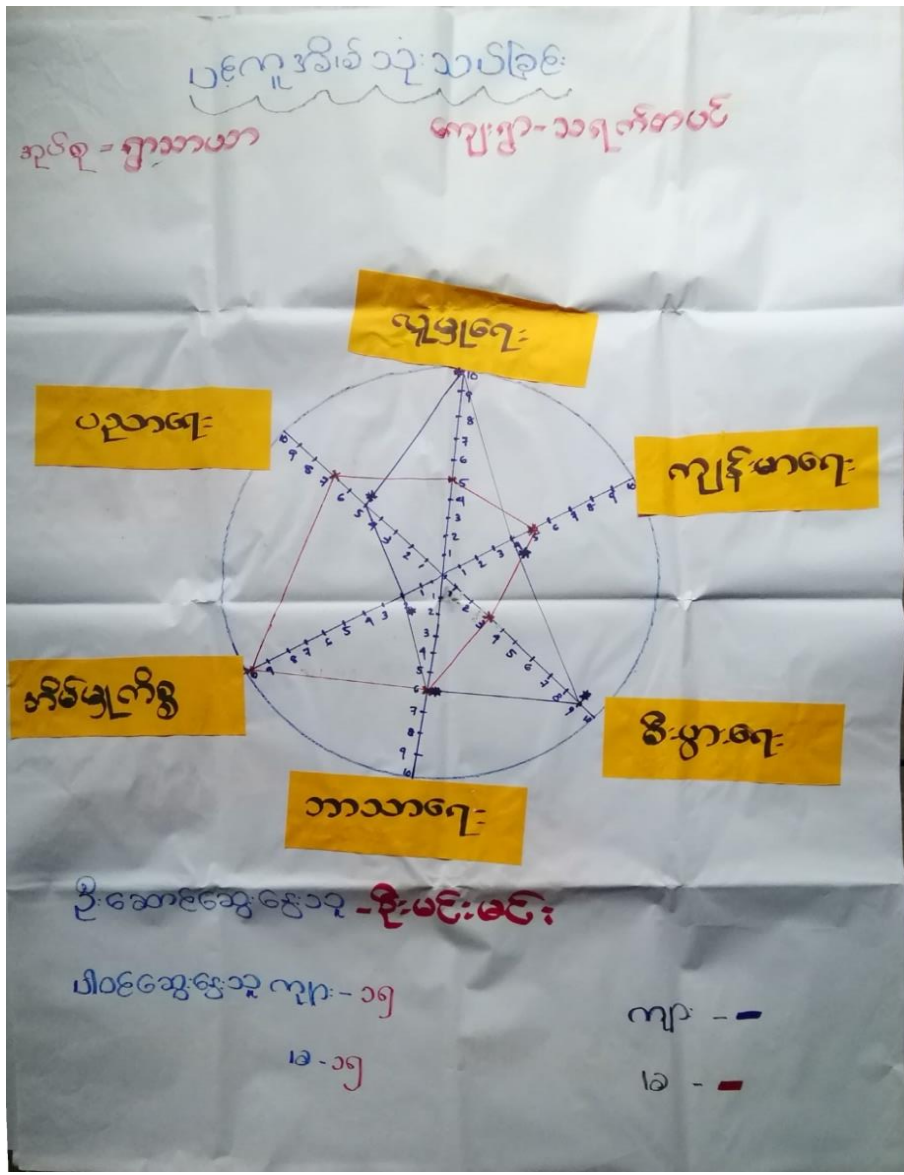 ပင့်ကူအိမ်သုံးသပ်ခြင်း
အုပ်စု = ရွာသာယာ
ကျေးရွာ - သရက်တပင်
လူမှုရေး
10
9
8
7
6
5
4
3
2
1
ပညာရေး
ကျန်းမာရေး
အိမ်မှုကိစ္စ
စီးပွားရေး
ဘာသာရေး
ဦးဆောင်ဆွေးနွေးသူ - စိုးမင်းမင်း
ပါဝင်ဆွေးနွေးသူ ကျား - ၁၅
မ - ၁၅
ကျား -
မ -